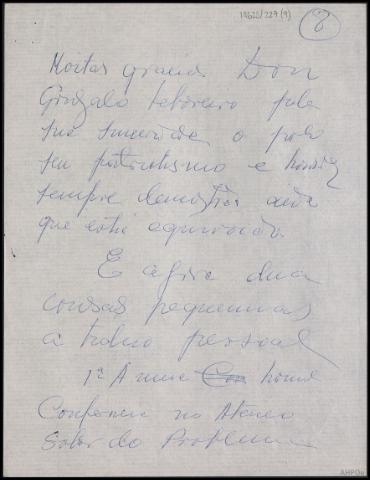 19620/229(9) 8
Moitas gracias Don
Gonzalo pola
sua sinceridade o polo
seu patriotismo e
sempre demostras ainda
que este equivocado.
E agora dua
cousas pequenas
a título persoal
1ª A miña Con home
Conferencia no Ateneo
Sobor do Problema
AHPOu